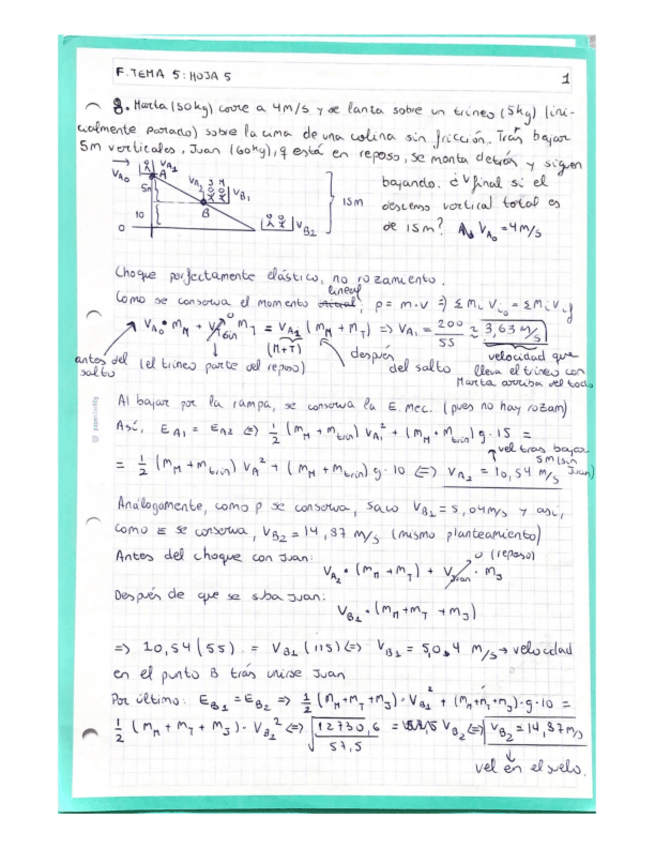 F. TEMA 5: HOJA 5
1
8. Marta (50kg) corre a 4m/s y se lanza sobre un trineo (5kg) (ini-
cialmente parado) sobre la cima de una colina sin fricción. Trás bajar
5m verticales, Juan (60kg), q está en reposo, se monta detrás y siguen
bajando. ¿V final si el
descenso vertical total es
de 15m? VA0 = 4m/s
VA0 VA1 A
5m VA2 B VB1
10
0 VB2
15m
Choque perfectamente elástico, no rozamiento.
lineal
Como se conserva el momento : p = m·v => Σmi vi0 = Σmi vif
VA0 · mM + Vtrin · mT = VA1 (mM + mT) => VA1 = 200/55 ≈ 3,63 m/s
0
(M+T)
antes del salto
(el trineo parte del reposo)
después del salto
velocidad que
lleva el trineo con
Marta arriba del todo
Al bajar por la rampa, se conserva la E. Mec. (pues no hay rozam)
Así, EA1 = EA2 <=> 1/2 (mM + mtrin) VA1² + (mM + mtrin) g · 15 =
= 1/2 (mM + mtrin) VA² + (mM + mtrin) g · 10 <=> VA2 = 10,54 m/s
vel tras bajar
5m (sin
Juan)
Análogamente, como p se conserva, saco VB1 = 5,04m/s y así,
como E se conserva, VB2 = 14,87 m/s (mismo planteamiento)
Antes del choque con Juan:
VA2 · (mM + mT) + VJuan · mJ
0 (reposo)
Después de que se suba Juan:
VB1 · (mM + mT + mJ)
=> 10,54 (55) = VB1 (115) <=> VB1 = 5,04 m/s → velocidad
en el punto B trás unirse Juan
Por último: EB1 = EB2 => 1/2 (mM + mT + mJ) · VB1² + (mM + mT + mJ) · g · 10 =
1/2 (mM + mT + mJ) · VB2² <=> √12730,6/57,5 = VB2 <=> VB2 = 14,87m/s
vel en el suelo.